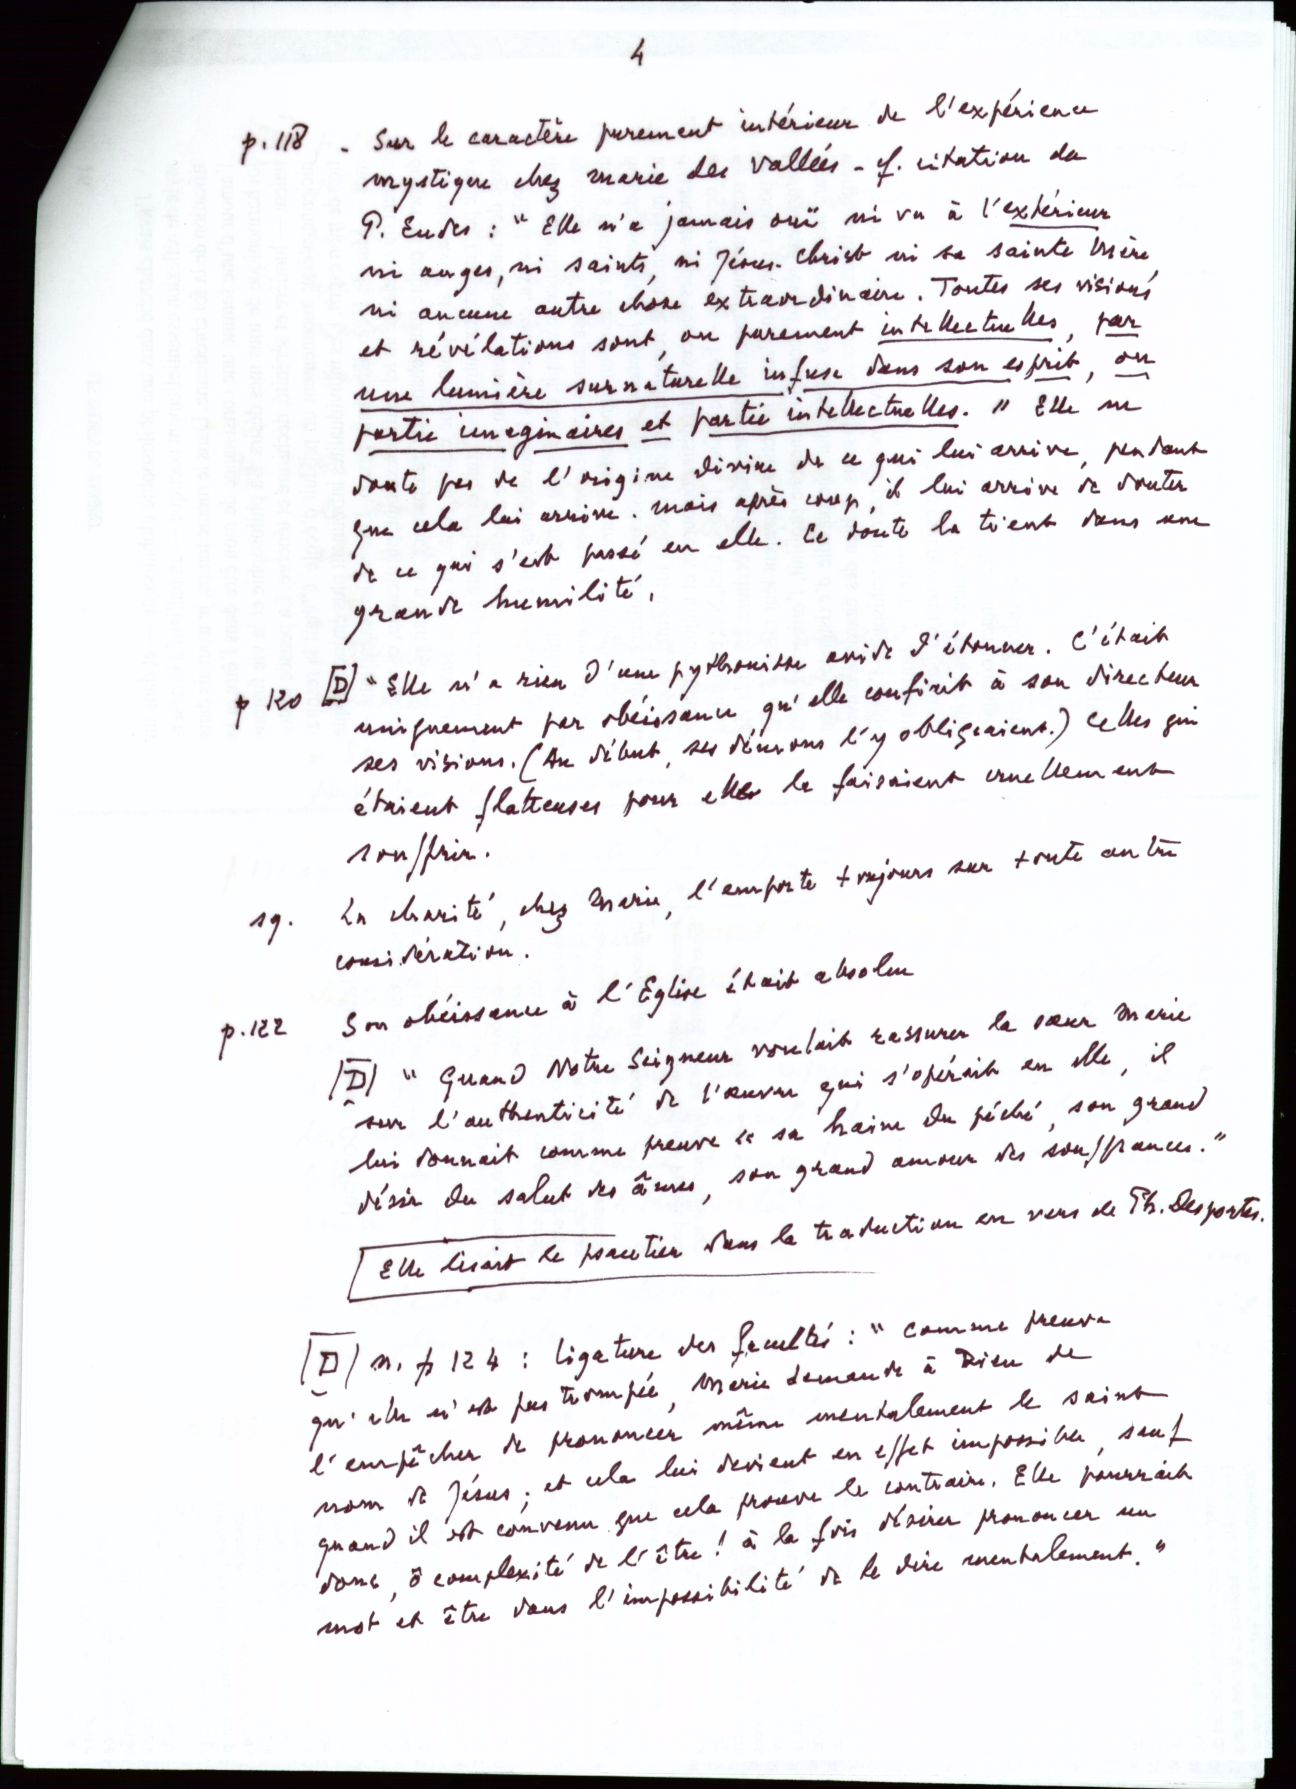 4
p. 118 - Sur le caractère purement intérieur de l'expérience
mystique chez Marie des Vallées - cf. citation du
P. Eudes : " Elle n'a jamais ouï ni vu à l'extérieur
ni anges, ni saints, ni Jésus-Christ ni sa sainte Mère,
ni aucune autre chose extraordinaire. Toutes ses visions
et révélations sont, ou purement intellectuelles, par
une lumière surnaturelle infuse dans son esprit, ou
partie imaginaires et partie intellectuelles. " Elle ne
doute pas de l'origine divine de ce qui lui arrive, pendant
que cela lui arrive. Mais après coup, il lui arrive de douter
de ce qui s'est passé en elle. Ce doute la tient dans une
grande humilité.
p 120 [D] " Elle n'a rien d'une pythonisse avide d'étonner. C'était
uniquement par obéissance qu'elle confiait à son directeur
ses visions. (Au début, ses démons l'y obligeaient.) Celles qui
étaient flatteuses pour elle la faisaient cruellement
souffrir.
sq. La charité, chez Marie, l'emporte toujours sur toute autre
considération.
p. 122 Son obéissance à l'Eglise était absolue
[D] " Quand Notre Seigneur voulait rassurer la sœur Marie
sur l'authenticité de l'œuvre qui s'opérait en elle, il
lui donnait comme preuve sa haine du péché, son grand
désir du salut des âmes, son grand amour des souffrances. "
Elle lisait le psautier dans la traduction en vers de Ph. Desportes.
[D] n. p 124 : ligature des facultés : " Comme preuve
qu'elle n'est pas trompée, Marie demande à Dieu de
l'empêcher de prononcer même mentalement le saint
nom de Jésus ; et cela lui devient en effet impossible, sauf
quand il est convenu que cela prouve le contraire. Elle pourrait
donc, ô complexité de l'être ! à la fois désirer prononcer un
mot et être dans l'impossibilité de le dire mentalement. "